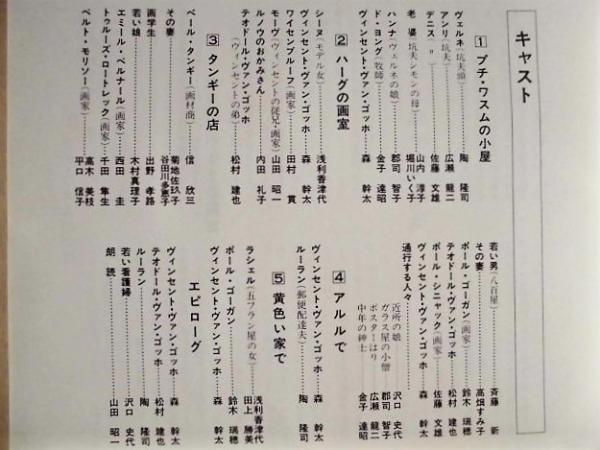 キャスト
1 プチ・ワスムの小屋
ヴェルネ(坑夫頭) 陶 隆司
アンリ(坑夫) 広瀬 龍二
デニス(〃) 佐藤 文雄
老 婆(坑夫シモンの母) 山内 淳子
堀川 いく子
ハンナ(ヴェルネの娘) 郡司 智子
ド・ヨング(牧師) 金子 達昭
ヴィンセント・ヴァン・ゴッホ 森 幹太
2 ハーグの画室
シーヌ(モデル女) 浅利香津代
ヴィンセント・ヴァン・ゴッホ 森 幹太
ワイセンブルーフ(画家) 田村 貫
モーヴ(ヴィンセントの従兄・画家) 山田 昭一
ルノウのおかみさん 内田 礼子
テオドール・ヴァン・ゴッホ 松村 建也
(ヴィンセントの弟)
3 タンギーの店
ペール・タンギー(画材商) 信 欣三
その妻 菊地佐玖子
谷田川多恵子
画学生 出野 孝路
若い娘 木村真理子
エミール・ベルナール(画家) 西田 圭
トゥルーズ・ロートレック(画家) 千田 隼生
高木 美枝
ベルト・モリソー(画家) 平口 信子
若い男(八百屋) 斉藤 新
その妻 高畑すみ子
ポール・ゴーガン(画家) 鈴木 瑞穂
テオドール・ヴァン・ゴッホ 松村 建也
ポール・シニャック(画家) 佐藤 文雄
ヴィンセント・ヴァン・ゴッホ 森 幹太
通行する人々
近所の娘 沢口 史代
ガラス屋の小僧 郡司 智子
ポスターはり 広瀬 龍二
中年の紳士 金子 達昭
4 アルルで
ヴィンセント・ヴァン・ゴッホ 森 幹太
ルーラン(郵便配達夫) 陶 隆司
5 黄色い家で
ラシェル(五フラン屋の女) 浅利香津代
田上 勝美
ポール・ゴーガン 鈴木 瑞穂
ヴィンセント・ヴァン・ゴッホ 森 幹太
エピローグ
ヴィンセント・ヴァン・ゴッホ 森 幹太
テオドール・ヴァン・ゴッホ 松村 建也
ルーラン 陶 隆司
若い看護婦 沢口 史代
朗 読 山田 昭一